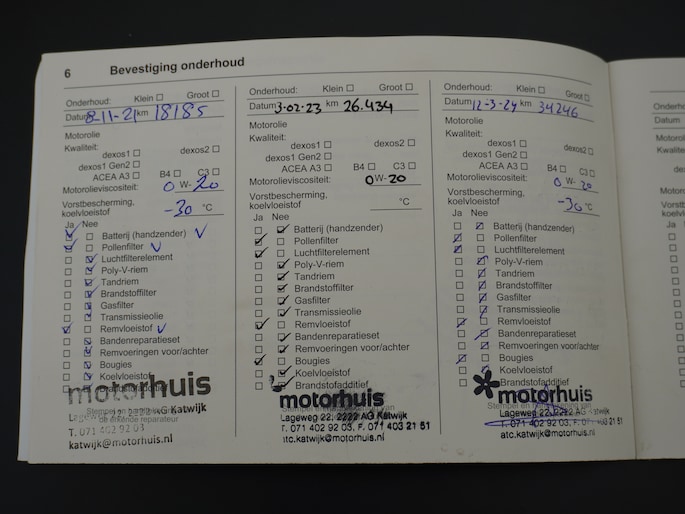 6 Bevestiging onderhoud
Onderhoud: Klein Groot
Datum 8-11-21 km 18185
Motorolie
Kwaliteit:
dexos1 dexos2
dexos1 Gen2
ACEA A3 B4 C3
Motorolieviscositeit: 0 W- 20
Vorstbescherming,
koelvloeistof -30 °C
Ja Nee
Batterij (handzender)
Pollenfilter
Luchtfilterelement
Poly-V-riem
Tandriem
Brandstoffilter
Gasfilter
Transmissieolie
Remvloeistof
Bandenreparatieset
Remvoeringen voor/achter
Bougies
Koelvloeistof
Brandstofadditief
motorhuis
Stempel en
Lageweg 22, 2222 AG Katwijk
de erkende reparateur
T. 071 402 92 03
katwijk@motorhuis.nl
Onderhoud: Klein Groot
Datum 3-02-23 km 26.434
Motorolie
Kwaliteit:
dexos1 dexos2
dexos1 Gen2
ACEA A3 B4 C3
Motorolieviscositeit: 0 W- 20
Vorstbescherming,
koelvloeistof °C
Ja Nee
Batterij (handzender)
Pollenfilter
Luchtfilterelement
Poly-V-riem
Tandriem
Brandstoffilter
Gasfilter
Transmissieolie
Remvloeistof
Bandenreparatieset
Remvoeringen voor/achter
Bougies
Koelvloeistof
Brandstofadditief
motorhuis
Stempel en van
Lageweg 22, 2222 AG Katwijk
T. 071 402 92 03, F. 071 403 21 51
atc.katwijk@motorhuis.nl
Onderhoud: Klein Groot
Datum 12-3-24 km 34246
Motorolie
Kwaliteit:
dexos1 dexos2
dexos1 Gen2
ACEA A3 B4 C3
Motorolieviscositeit: 0 W- 20
Vorstbescherming,
koelvloeistof -30 °C
Ja Nee
Batterij (handzender)
Pollenfilter
Luchtfilterelement
Poly-V-riem
Tandriem
Brandstoffilter
Gasfilter
Transmissieolie
Remvloeistof
Bandenreparatieset
Remvoeringen voor/achter
Bougies
Koelvloeistof
Brandstofadditief
motorhuis
Stempel en
Lageweg 22, 2222 AG Katwijk
T. 071 402 92 03, F. 071 21 51
atc.katwijk@motorhuis.nl
Datum
Motorolie
Kwaliteit: